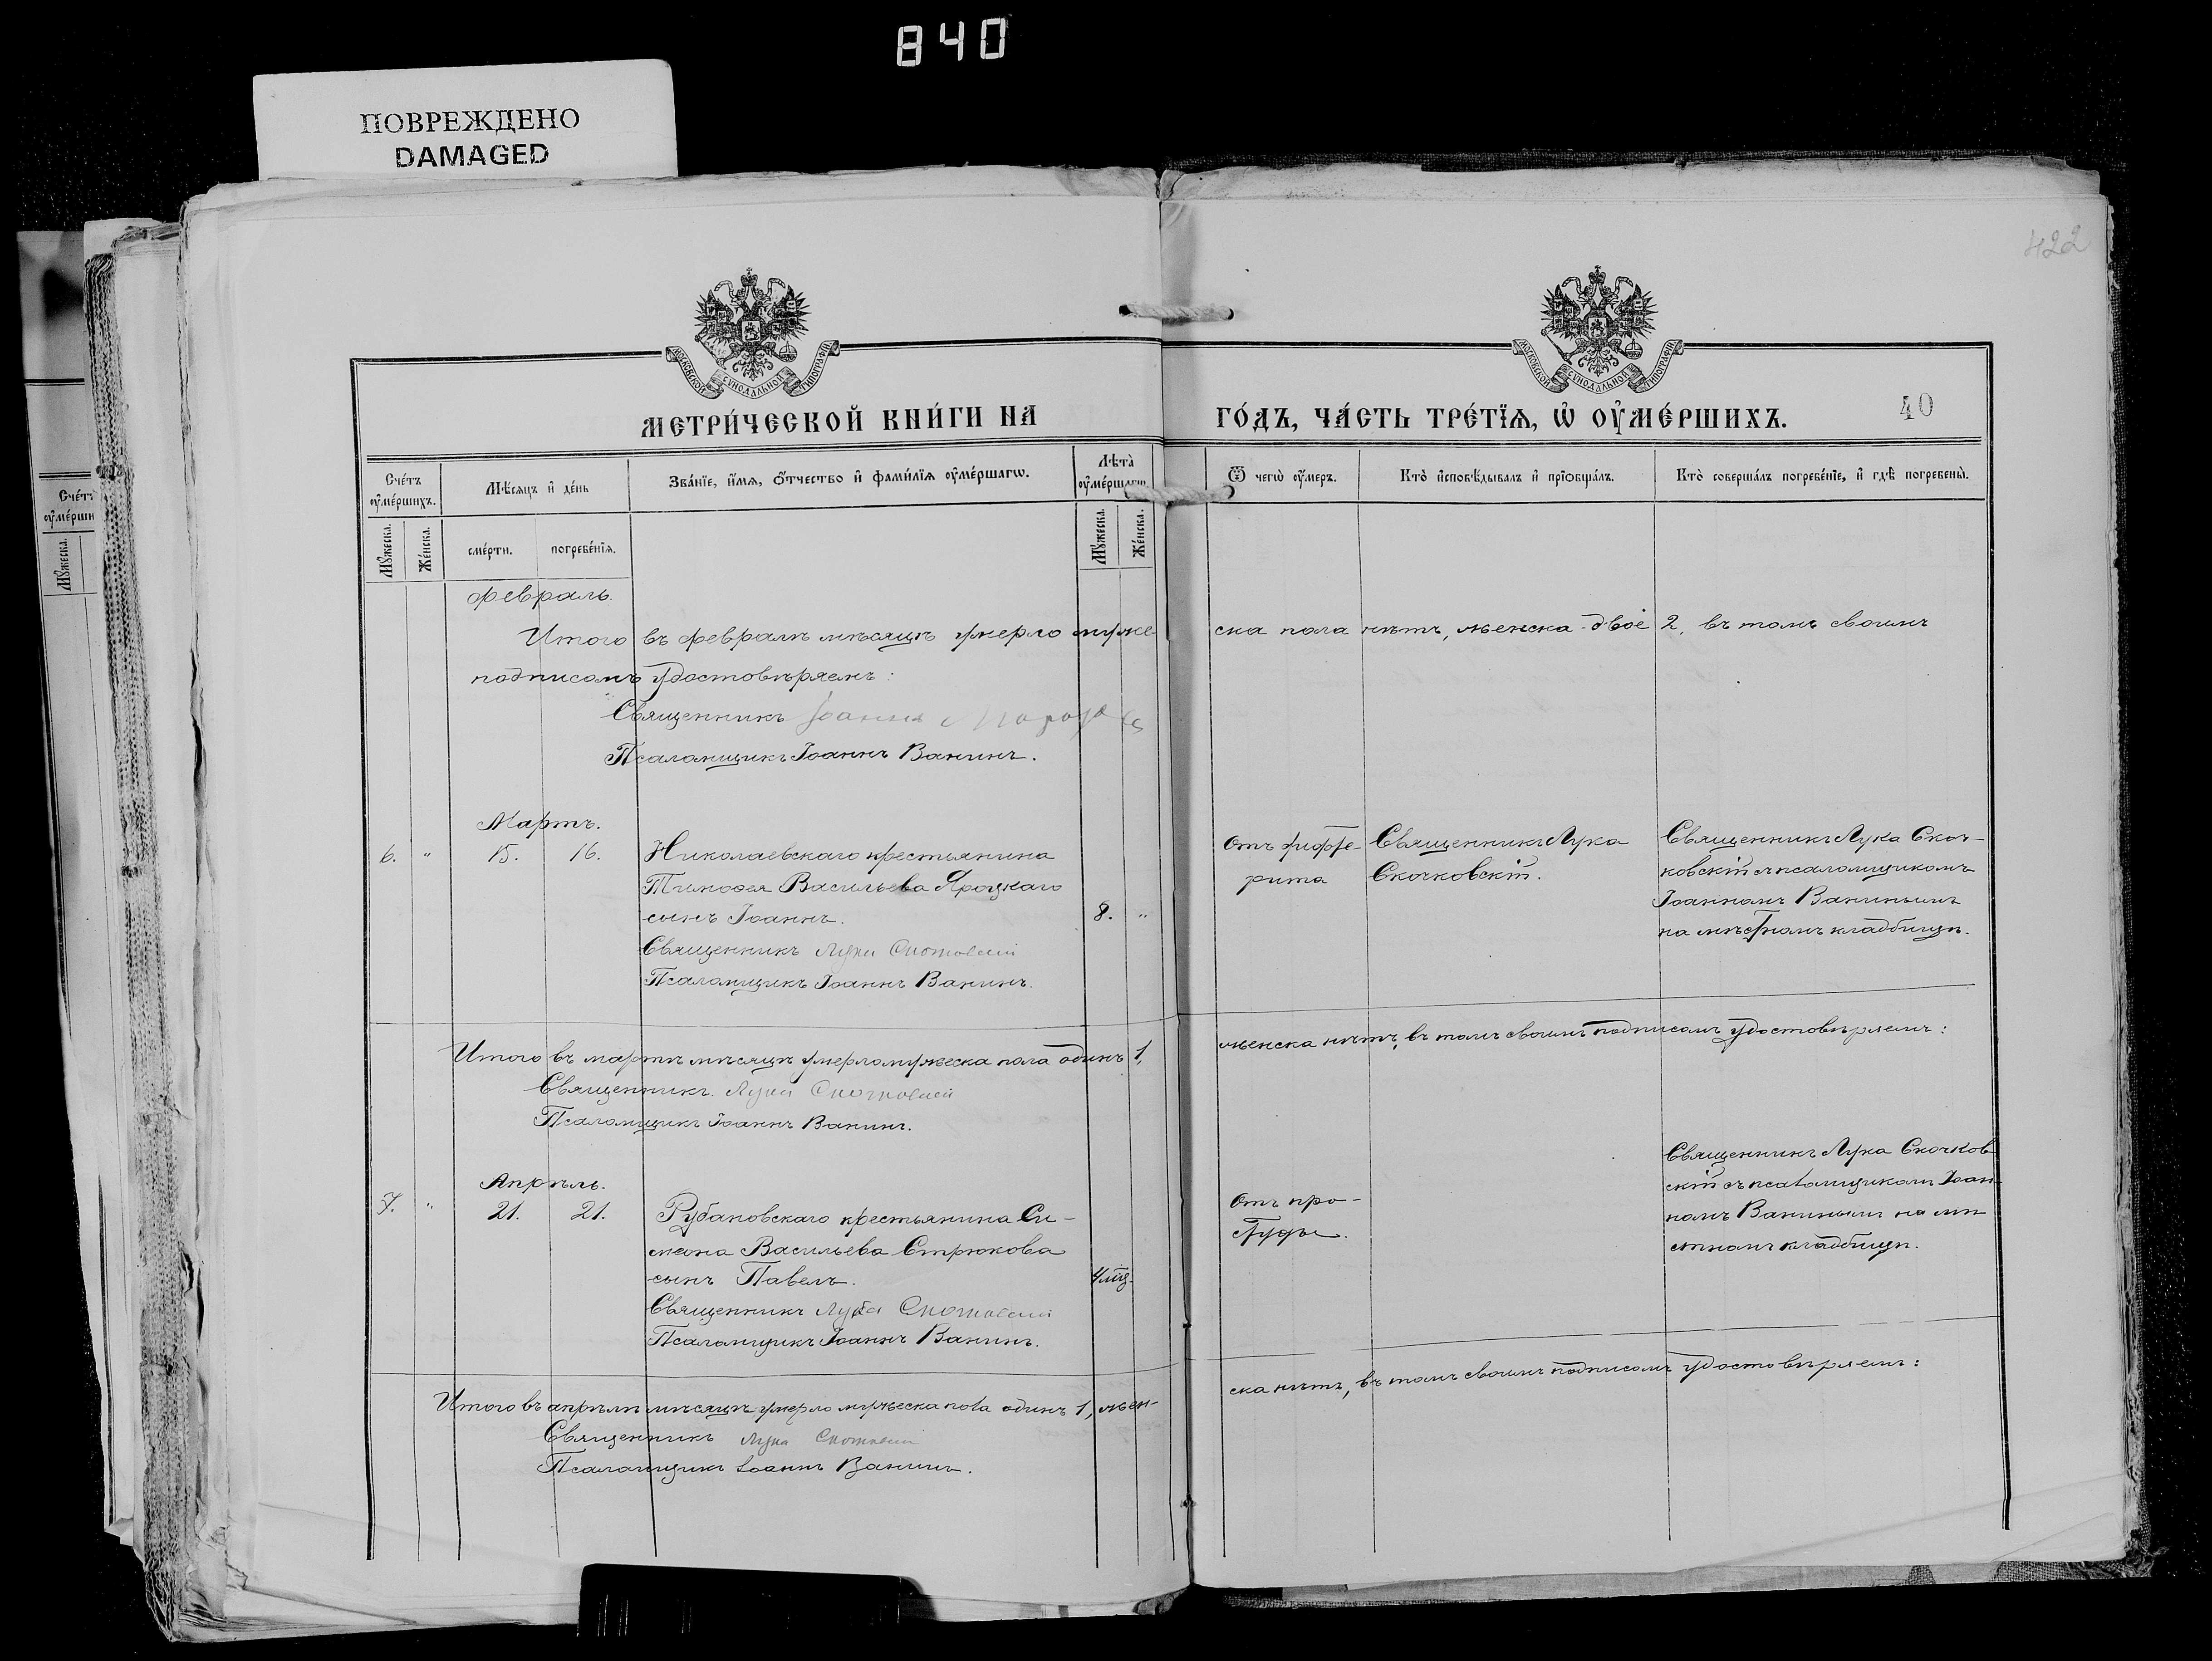 840
ПОВРЕЖДЕНО
DAMAGED
422
МОСКОВСКОЙ СѴНОДАЛЬНОЙ ТИПОГРАФІИ
МОСКОВСКОЙ СѴНОДАЛЬНОЙ ТИПОГРАФІИ
МЕТРИ́ЧЕСКОЙ КНИ́ГИ НА
ГО́ДЪ, ЧА́СТЬ ТРЕ́ТЇѦ, Ѡ҆ ОУ҆МЕ́РШИХЪ.
40
Сче́тъ оу҆ме́ршихъ.
Мѣ́сѧцъ и҆ де́нь
Зва́нїе, и҆́мѧ, ѻ҆́тчество и҆ фами́лїѧ оу҆ме́ршагѡ.
Лѣ́та оу҆ме́ршагѡ.
Ѿ чегѡ̀ оу҆́меръ.
Кто̀ и҆сповѣ́дывалъ и҆ прїѡбща́лъ.
Кто̀ соверша́лъ погребе́нїе, и҆ гдѣ̀ погребены̀.
Мꙋ́жеска.
Же́нска.
сме́рти.
погребе́нїѧ.
Мꙋ́жеска.
Же́нска.
Сче́тъ
оу҆ме́рши
Мꙋ́жеска.
Февраль.
Итого въ февралѣ мѣсяцѣ умерло муже-
ска пола нѣтъ, женска двое 2, въ томъ своимъ
подписомъ удостовѣряемъ:
Священникъ Іоаннъ
Псаломщикъ Іоаннъ Ванинъ.
Мартъ.
6. " 15. 16. Николаевскаго крестьянина
Тимофея Васильева Яроцкаго
сынъ Іоаннъ. 8. "
Священникъ Лука Скочковскій
Псаломщикъ Іоаннъ Ванинъ.
Отъ дифте-
рита
Священникъ Лука
Скочковскій.
Священникъ Лука Скоч-
ковскій съ псаломщикомъ
Іоанномъ Ванинымъ
на мѣстномъ кладбищѣ.
Итого въ мартѣ мѣсяцѣ умерло мужеска пола одинъ 1,
женска нѣтъ, въ томъ своимъ подписомъ удостовѣряемъ:
Священникъ Лука Скочковскій
Псаломщикъ Іоаннъ Ванинъ.
Апрѣль.
7. " 21. 21. Рубановскаго крестьянина Си-
меона Васильева Стрюкова
сынъ Павелъ. 4 мц.
Священникъ Лука Скочковскій
Псаломщикъ Іоаннъ Ванинъ.
Отъ про-
студы.
Священникъ Лука Скочков
скій съ псаломщикомъ Іоан-
номъ Ванинымъ на мѣ
стномъ кладбищѣ.
Итого въ апрѣлѣ мѣсяцѣ умерло мужеска пола одинъ 1, жен-
ска нѣтъ, въ томъ своимъ подписомъ удостовѣряемъ:
Священникъ Лука Скочковскій
Псаломщикъ Іоаннъ Ванинъ.